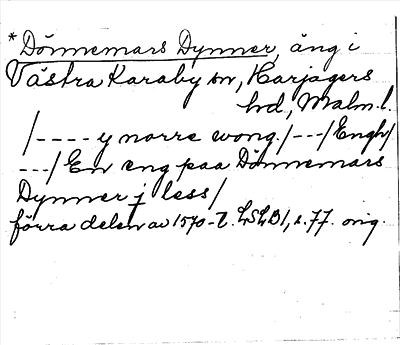 *Dönnemars Dynner, äng i
Västra Karaby sn, Harjagers
hd, Malm.l.
/---- y norre wong/---/Engh/
---/ En eng paa Dönnemars
Dynner j less/
förra delen av 1570-t. LSLB1, s.77. orig.